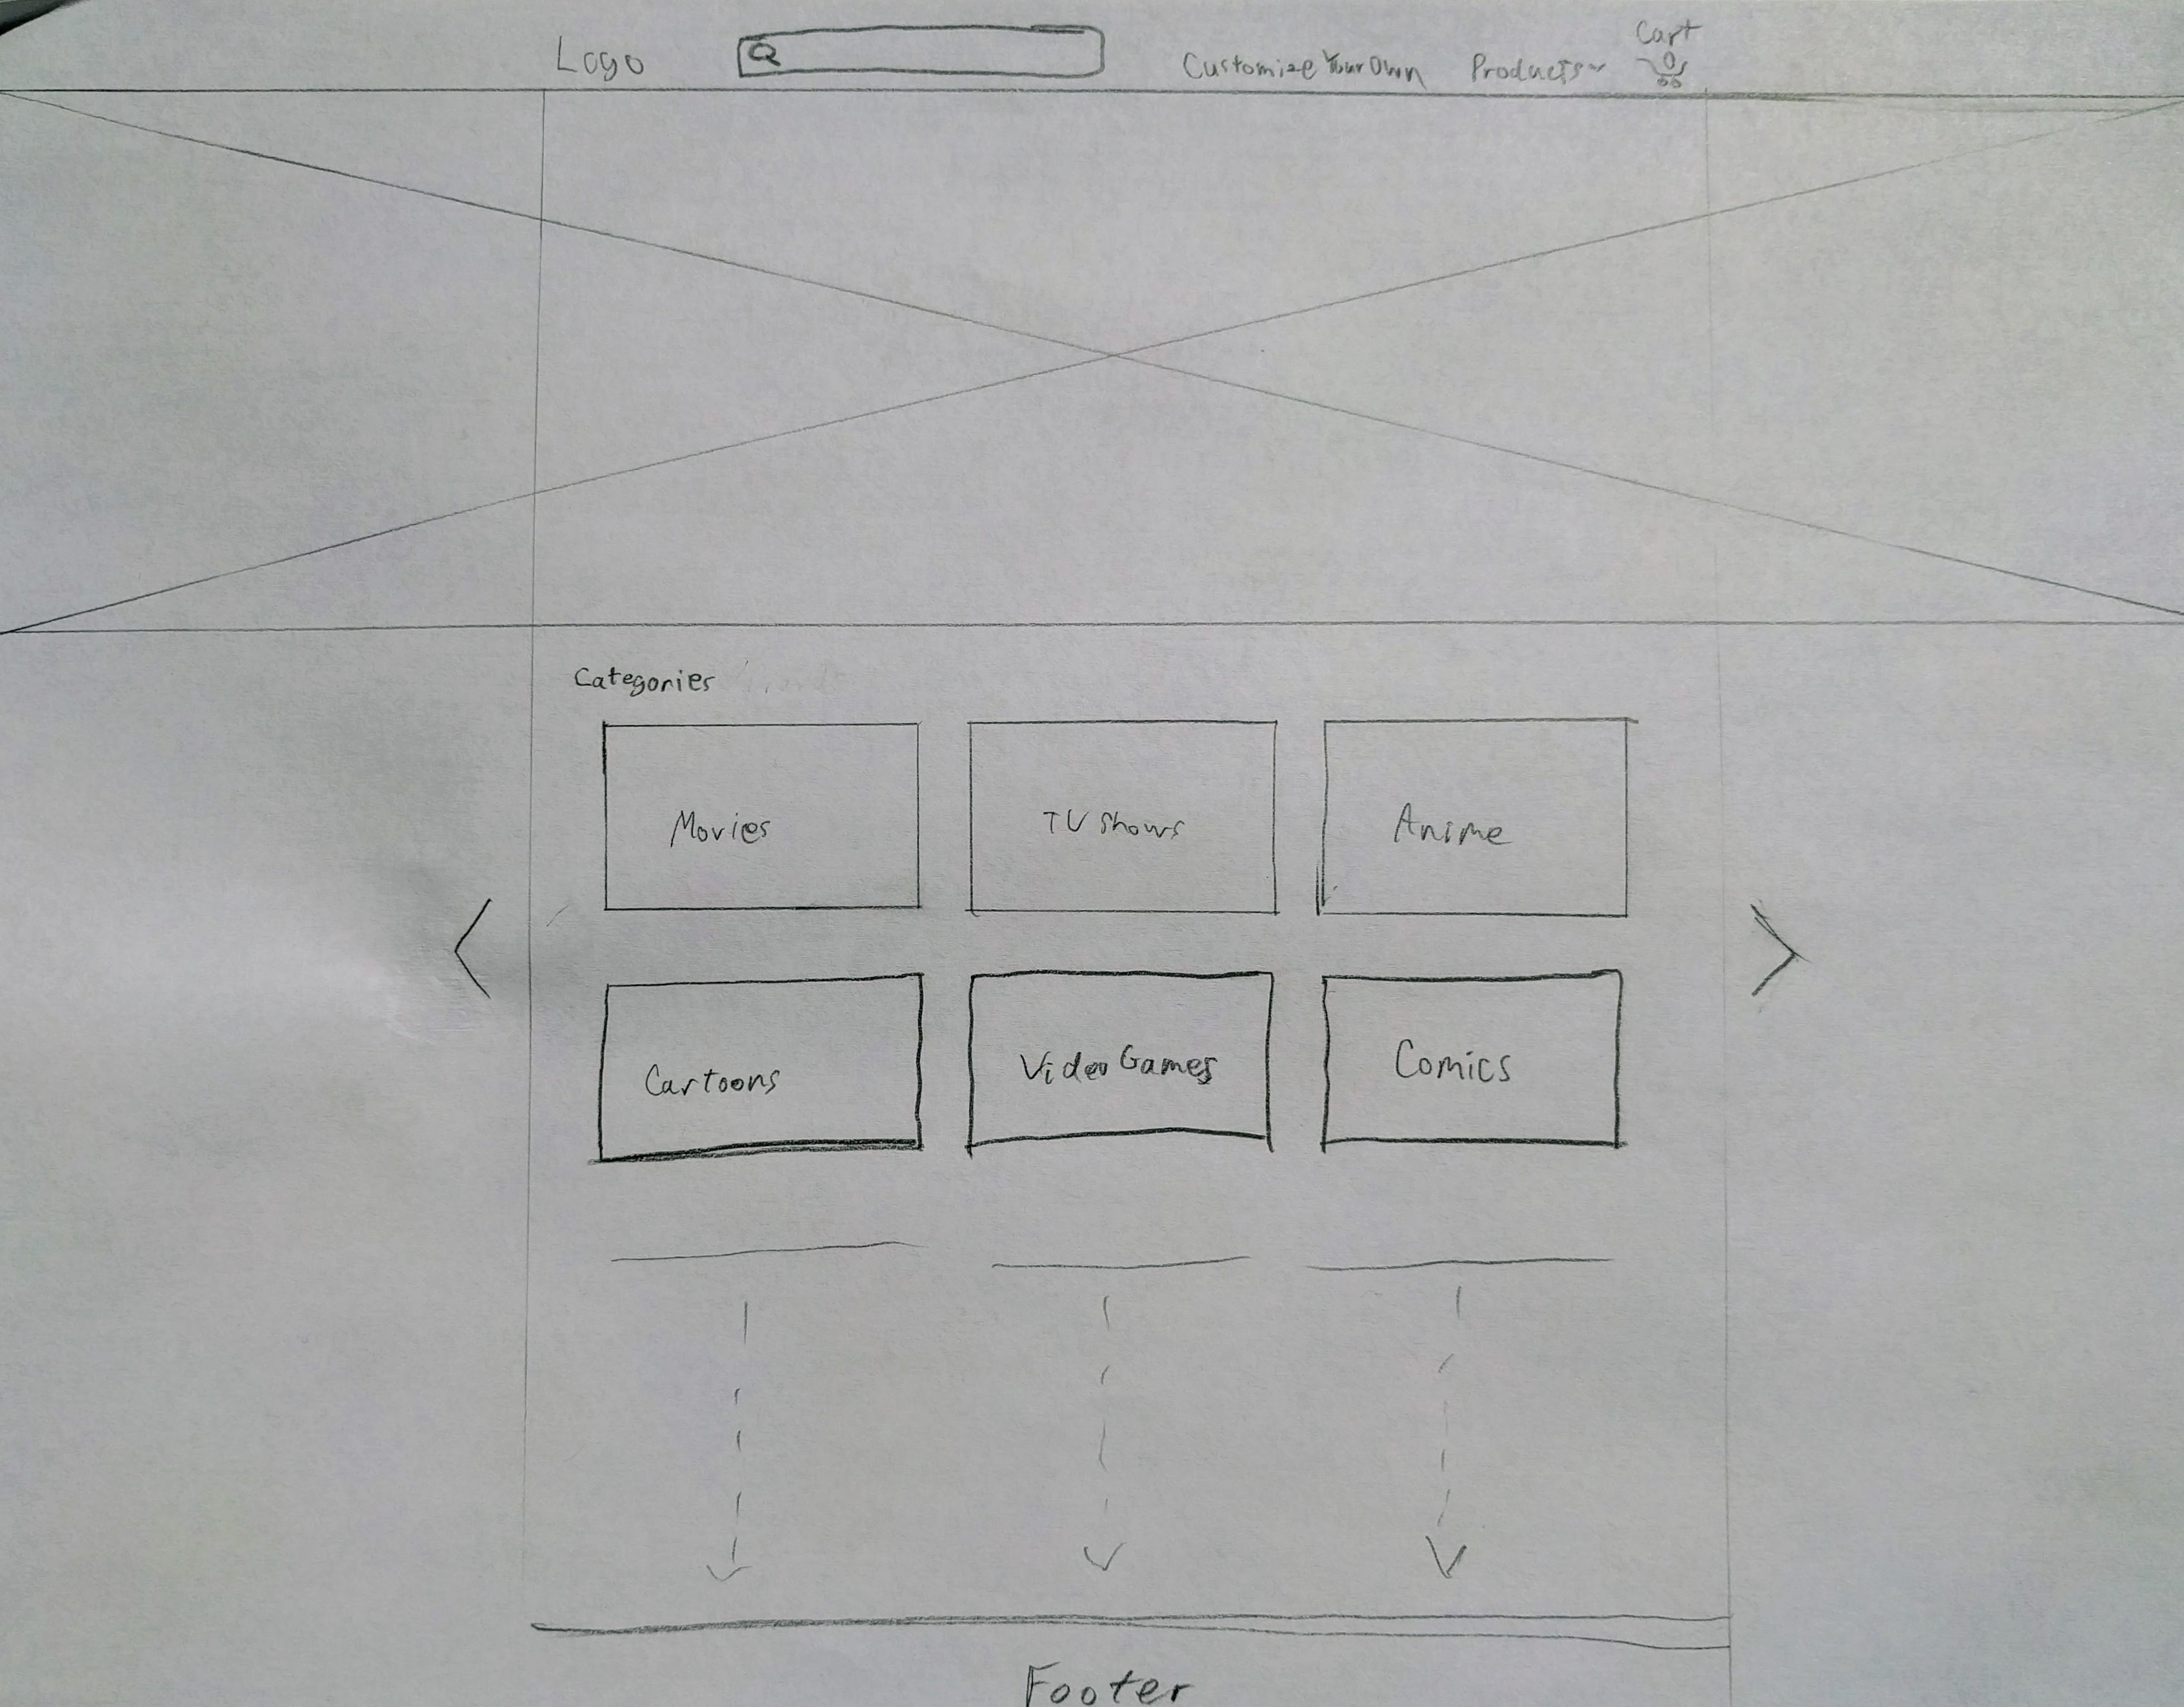 Logo
Customize Your Own
Products
Cart
Categories
Movies
TV Shows
Anime
Cartoons
Video Games
Comics
Footer